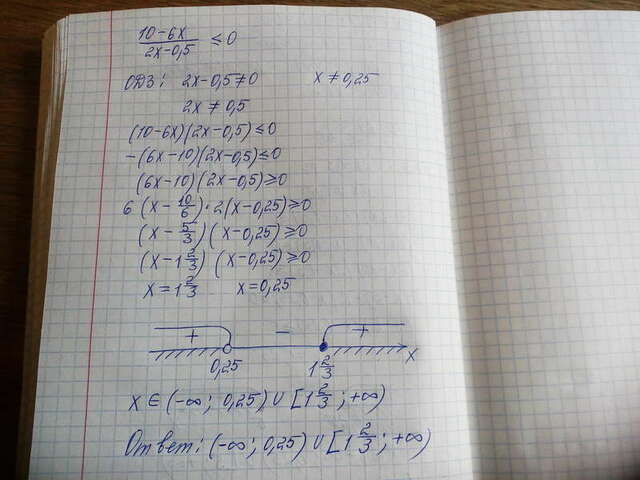 (10-6x)/(2x-0,5) ≤ 0
ОДЗ: 2x-0,5≠0 x≠0,25
2x≠0,5
(10-6x)(2x-0,5)≤0
-(6x-10)(2x-0,5)≤0
(6x-10)(2x-0,5)≥0
6(x-10/6)·2(x-0,25)≥0
(x-5/3)(x-0,25)≥0
(x-1 2/3)(x-0,25)≥0
x=1 2/3 x=0,25
+ - +
0,25 1 2/3 x
x∈(-∞; 0,25)∪[1 2/3; +∞)
Ответ: (-∞; 0,25)∪[1 2/3; +∞)